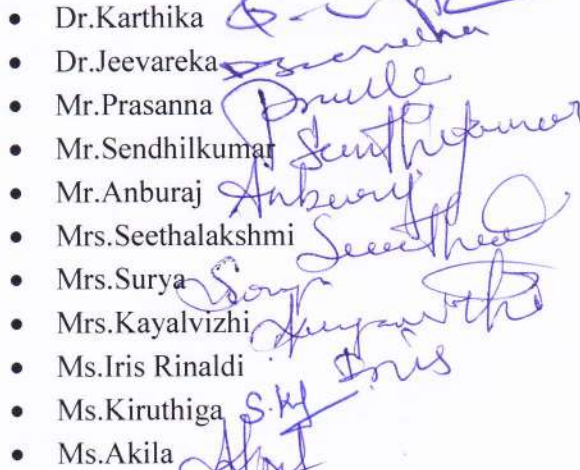 • Dr.Karthika
• Dr.Jeevareka
• Mr.Prasanna
• Mr.Sendhilkumar Senthilkumar
• Mr.Anburaj Anburaj
• Mrs.Seethalakshmi Seetha
• Mrs.Surya Surya
• Mrs.Kayalvizhi
• Ms.Iris Rinaldi Iris
• Ms.Kiruthiga
• Ms.Akila